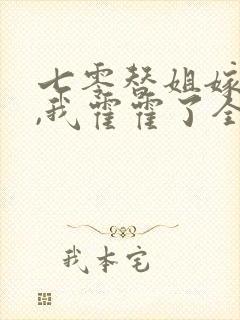 七零替姐嫁
,我霍霍了全
我本宅